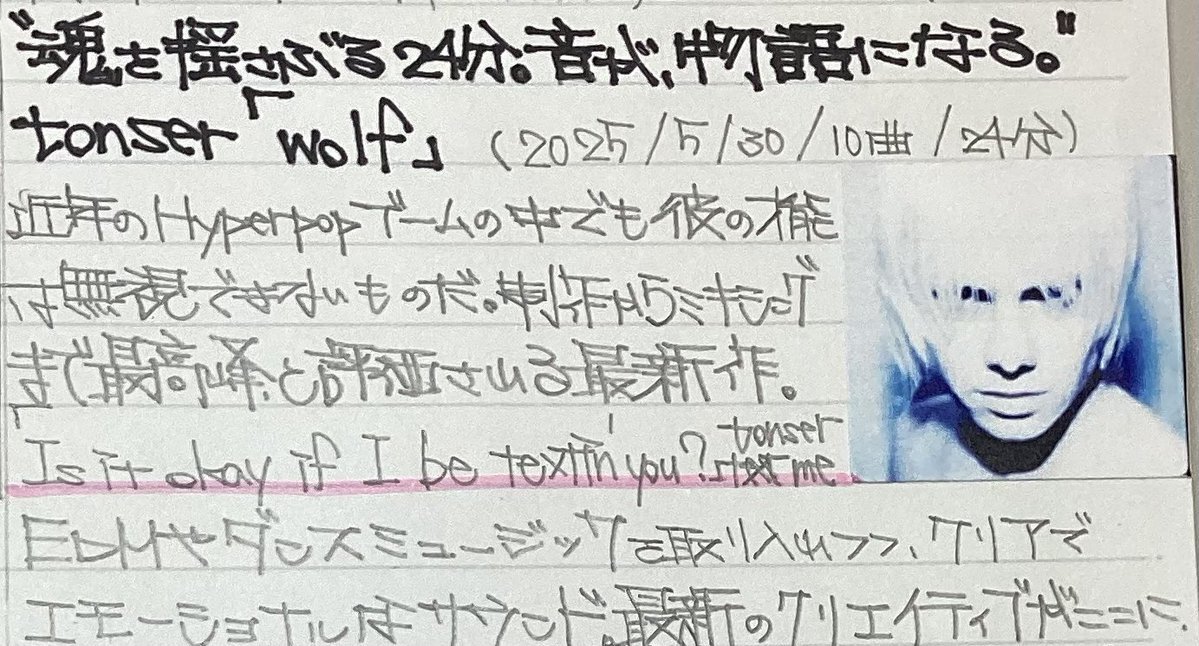 "魂を揺さぶる24分。音が、物語になる。"
tonser「wolf」(2025/5/30/10曲/24分)
近年のHyperpopブームの中でも彼の才能
は無視できないものだ。制作からミキシング
まで最高峰と評価される最新作。
「Is it okay if I be textin' you?」tonser text me
EDMやダンスミュージックを取り入れつつ、クリアで
エモーショナルなサウンド。最新のクリエイティブがここに。